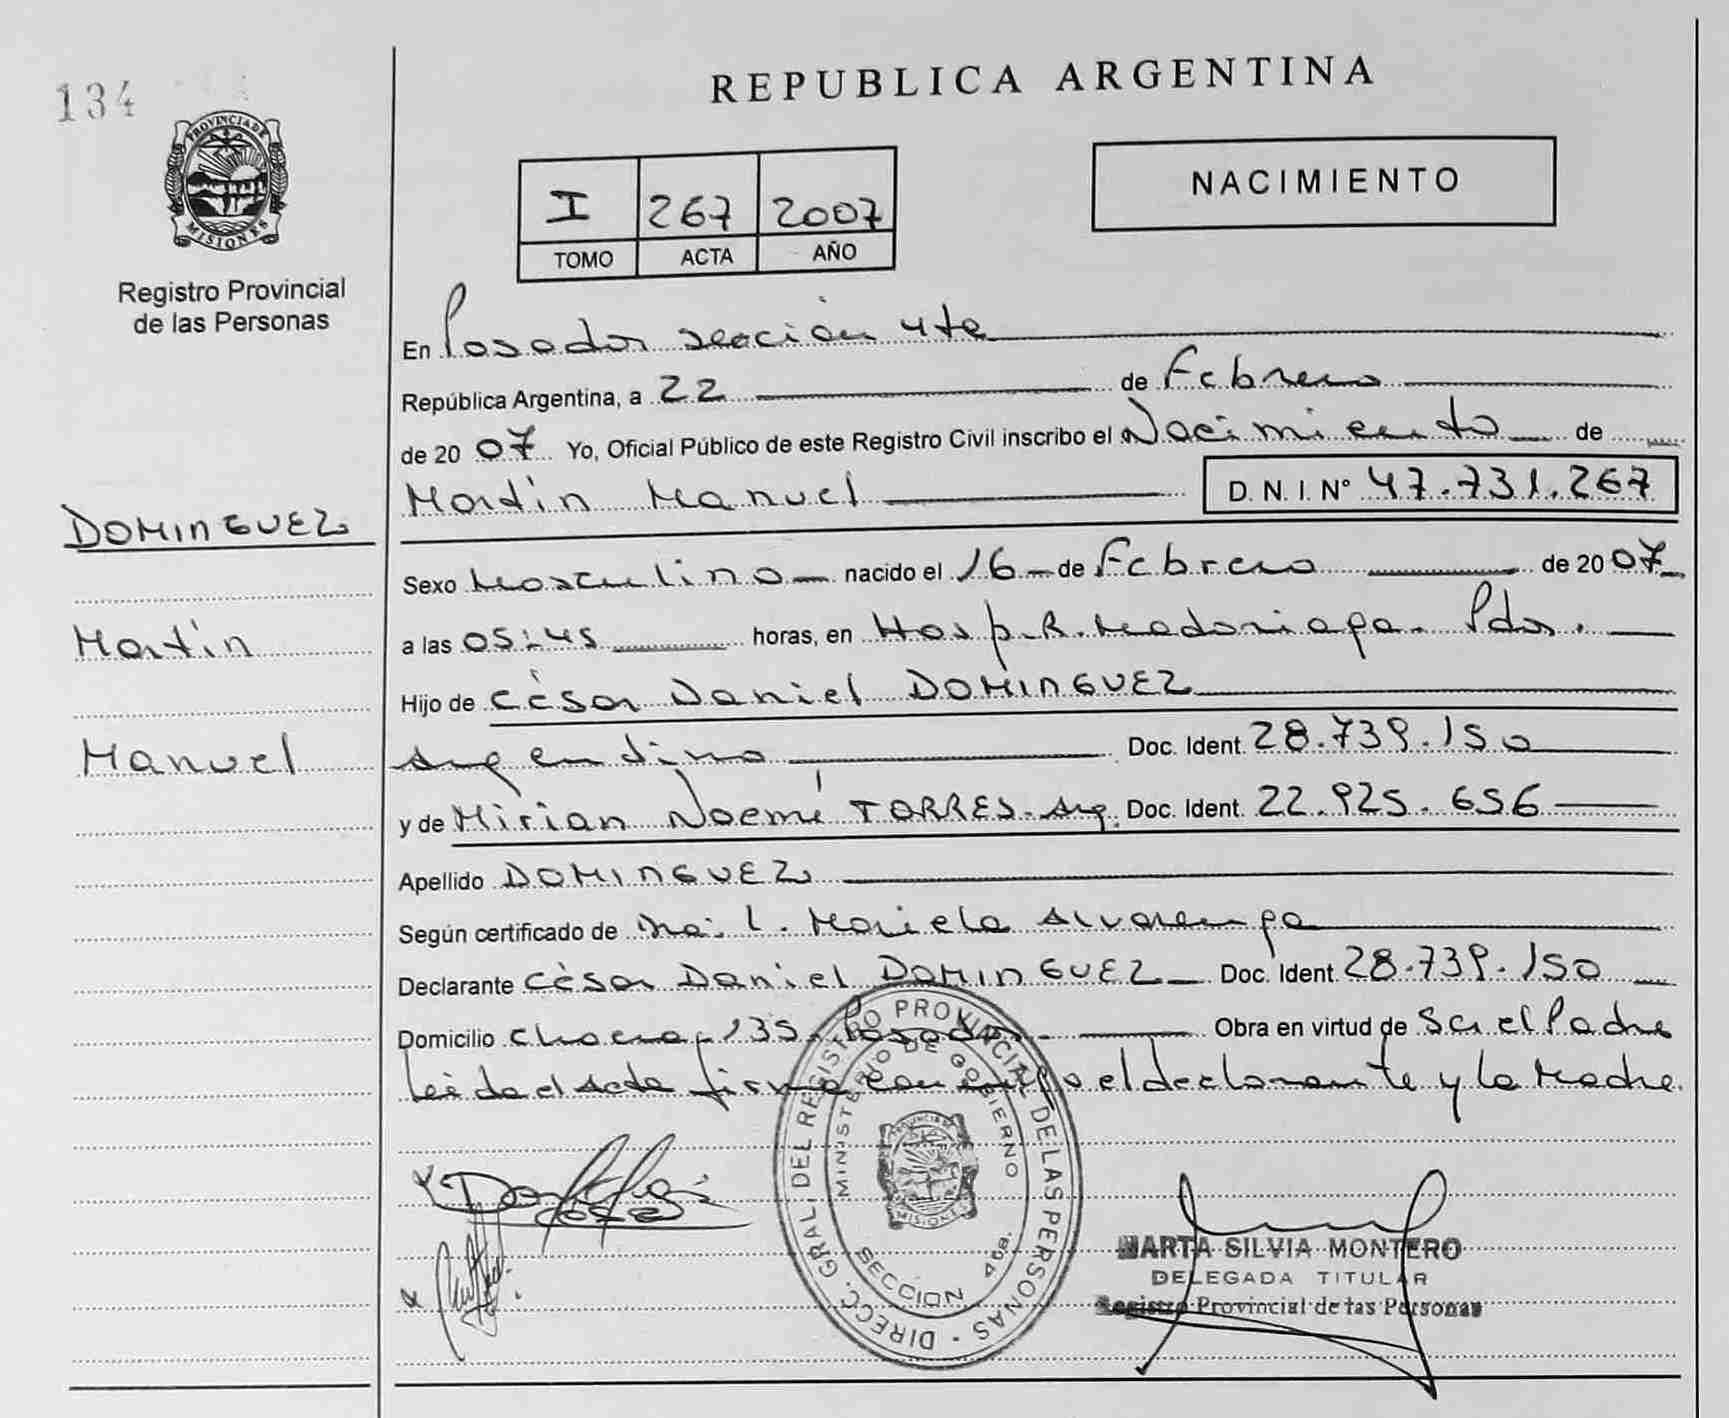 134
REPUBLICA ARGENTINA
PROVINCIA DE MISIONES
Registro Provincial
de las Personas
NACIMIENTO
I 267 2007
TOMO ACTA AÑO
En Posadas sección 4ta
República Argentina, a 22 de Febrero
de 2007 Yo, Oficial Público de este Registro Civil inscribo el Nacimiento de
Martín Manuel D. N. I. N° 47.731.267
DOMINGUEZ
Martín
Manuel
Sexo Masculino nacido el 16 de Febrero de 2007
a las 05:45 horas, en Hosp. R. Madariaga. Pdas.
Hijo de César Daniel DOMINGUEZ
Argentino Doc. Ident. 28.739.150
y de Mirian Noemí TORRES. Arg. Doc. Ident. 22.925.656
Apellido DOMINGUEZ
Según certificado de L. Mariela Alvarenga
Declarante César Daniel DOMINGUEZ Doc. Ident. 28.739.150
Domicilio 135 Posadas Obra en virtud de Ser el Padre
Leída el Acta firma con migo el declarante y la Madre
DIRECC. GRAL. DEL REGISTRO PROVINCIAL DE LAS PERSONAS
MINISTERIO DE GOBIERNO
MISIONES
SECCION 4ta.
MARTA SILVIA MONTERO
DELEGADA TITULAR
Registro Provincial de las Personas